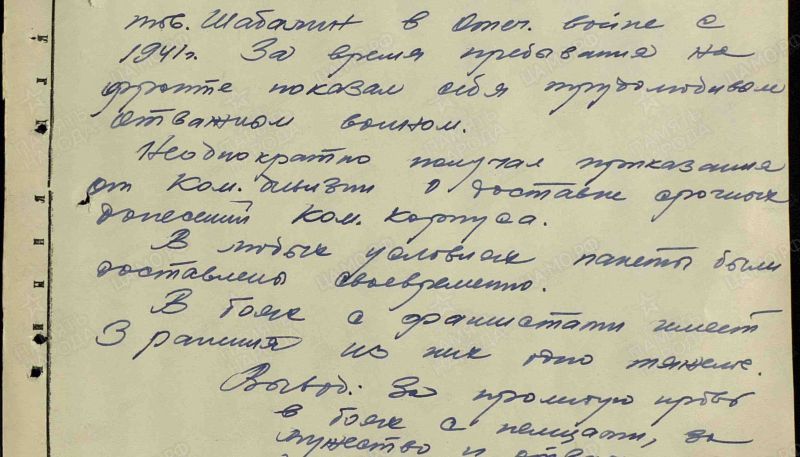 тов. Шабалин в отеч. войне с
1941 г. За время пребывания на
фронте показал себя трудолюбивым
отважным воином.
Неоднократно получал приказания
от Ком. дивизии о доставке срочных
донесений Ком. корпуса.
В любых условиях пакеты были
доставлены своевременно.
В боях с фашистами имеет
3 ранения из них одно тяжелое.
Вывод: За пролитую кровь
в боях с немцами, за
мужество и